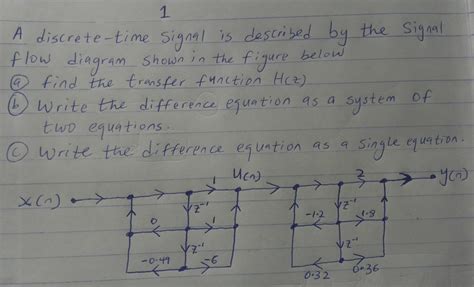 1
A discrete-time signal is described by the signal
flow diagram shown in the figure below
(a) find the transfer function H(z)
(b) Write the difference equation as a system of
two equations.
(c) Write the difference equation as a single equation.
x(n) 1 u(n) 2 y(n)
z⁻¹ z⁻¹
0 1 -1.2 1.8
z⁻¹ z⁻¹
-0.49 -6 0.32 0.36